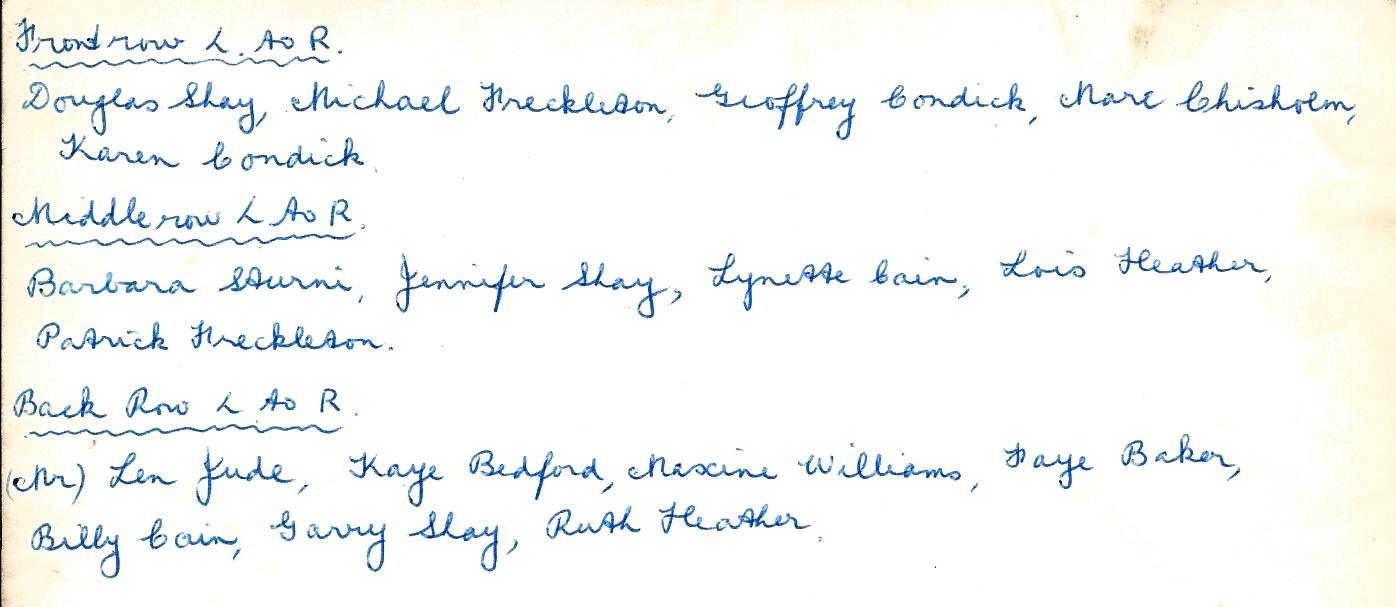 Front row L. to R.
Douglas Shay, Michael Freckleton, Geoffrey Condick, Marc Chisholm,
Karen Condick.
Middle row L to R.
Barbara Sturni, Jennifer Shay, Lynette Cain, Lois Heather,
Patrick Freckleton.
Back Row L to R.
(Mr) Len Jude, Kaye Bedford, Maxine Williams, Faye Baker,
Billy Cain, Garry Shay, Ruth Heather.